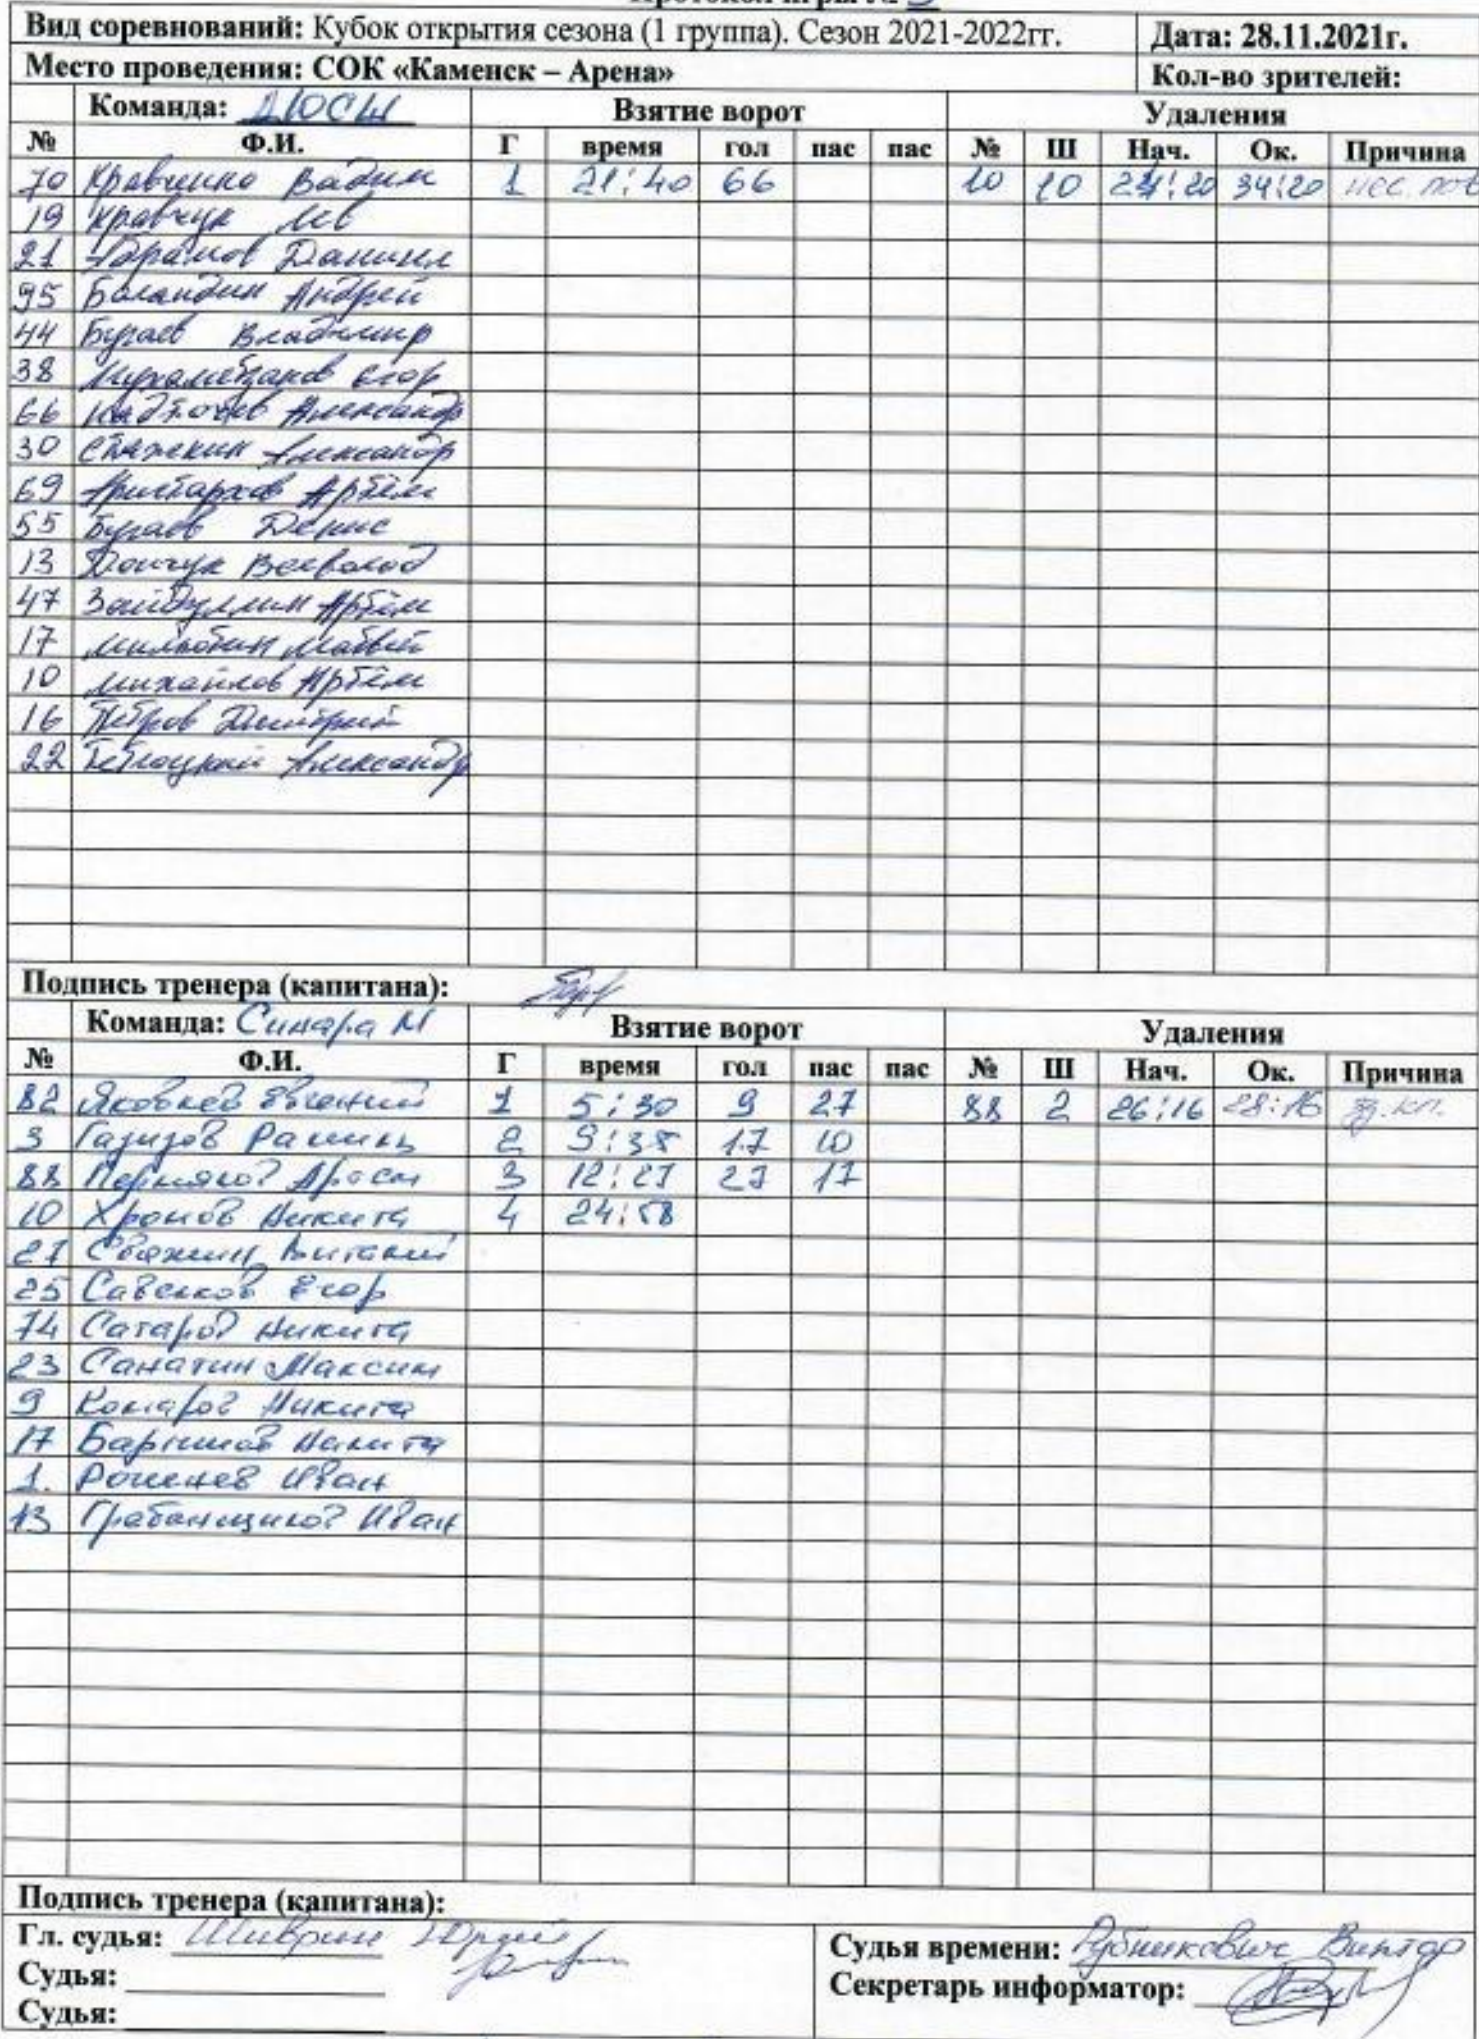 Протокол игры № 3
Вид соревнований: Кубок открытия сезона (1 группа). Сезон 2021-2022гг. Дата: 28.11.2021г.
Место проведения: СОК «Каменск – Арена» Кол-во зрителей:
Команда: ДЮСШ Взятие ворот Удаления
№ Ф.И. Г время гол пас пас № Ш Нач. Ок. Причина
70 Кравченко Вадим 1 21:40 66 10 10 24:20 34:20 нес. пов
19 Кравчук Лев
21 Абрамов Даниил
95 Баландин Андрей
44 Бугаев Владимир
38 Егор
66 Александр
30 Спажекин Александр
69 Аристархов Артём
55 Бугаев Денис
13 Донгук Всеволод
47 Зайдуллин Артём
17 Матвей
10 Михайлов Артём
16 Петров Дмитрий
22 Александр
Подпись тренера (капитана):
Команда: Синара М Взятие ворот Удаления
№ Ф.И. Г время гол пас пас № Ш Нач. Ок. Причина
82 Яковлев Евгений 1 5:30 9 27 88 2 26:16 28:16
3 Газизов Рамиль 2 9:35 17 10
88 Пермяков 3 12:27 27 17
10 Хромов Никита 4 24:58
27 Свяжин Виталий
25 Савенков Егор
74 Сатаров Никита
23 Санатин Максим
9 Комаров Никита
17 Барышов Никита
1. Рощенев Иван
13 Грабанщиков Иван
Подпись тренера (капитана):
Гл. судья: Шиврин Юрий Судья времени: Рубникович Виктор
Судья: Секретарь информатор:
Судья: